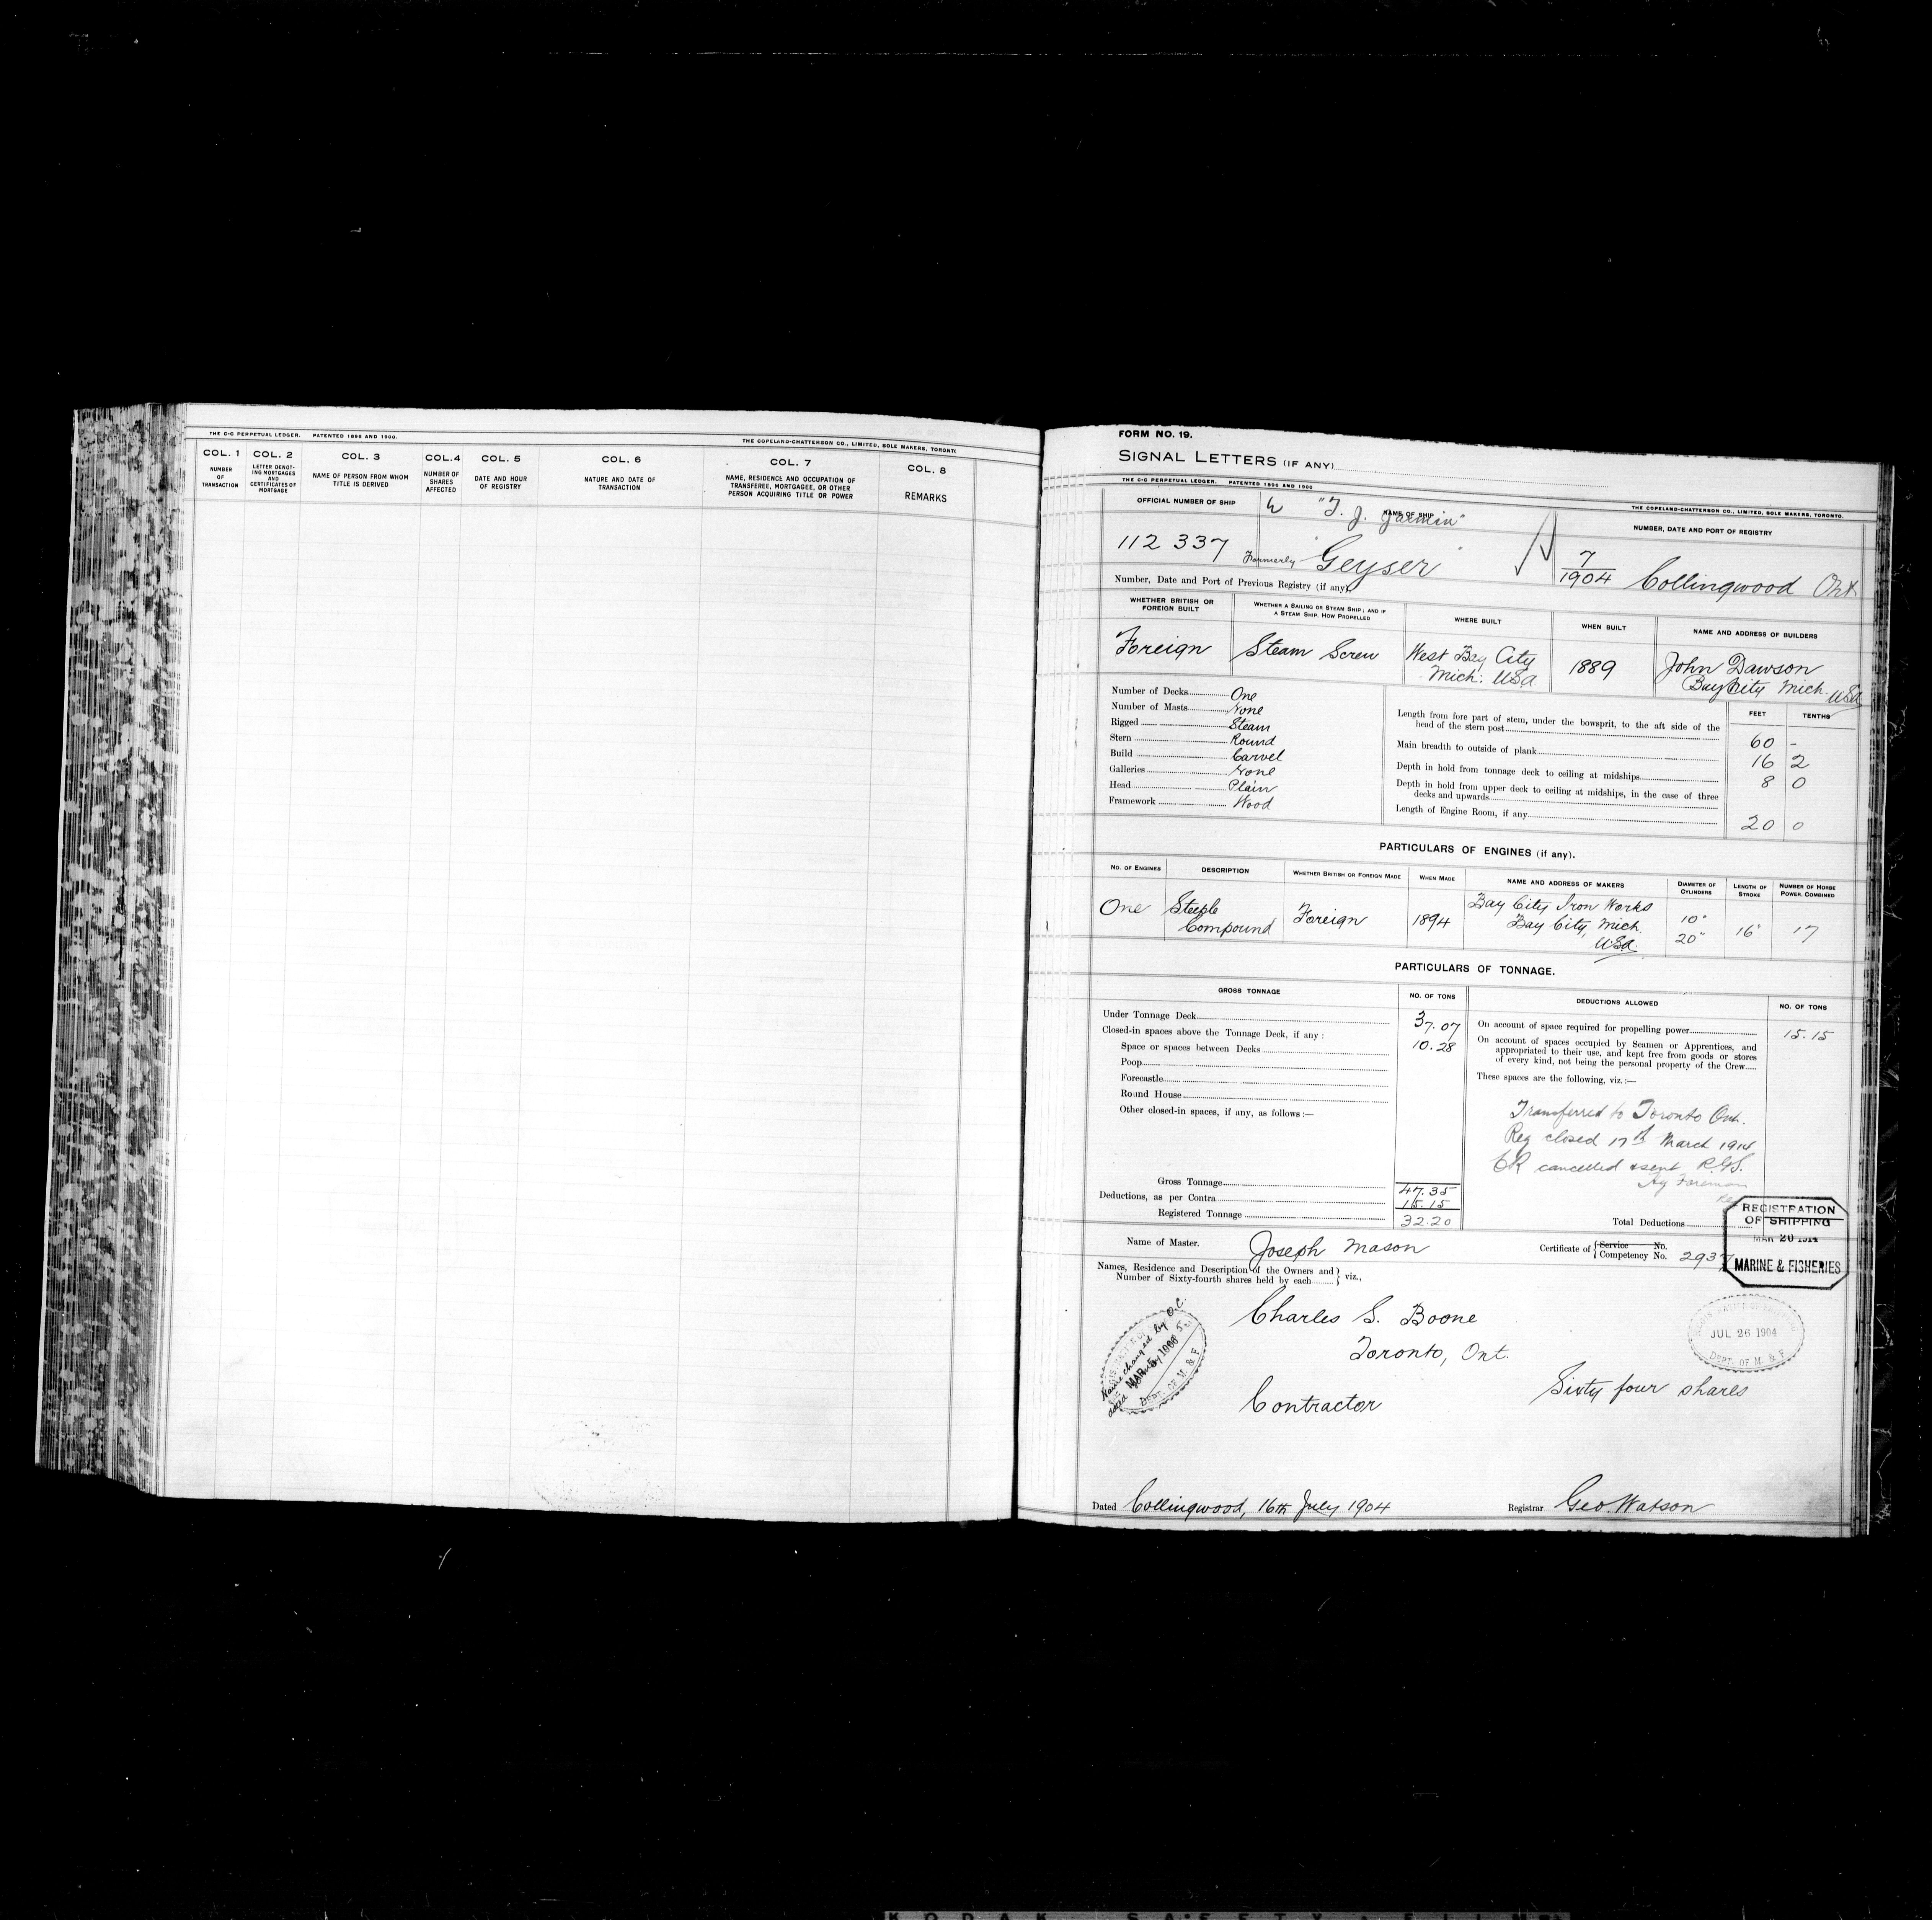 THE C-C PERPETUAL LEDGER. PATENTED 1896 AND 1900.
THE COPELAND-CHATTERSON CO., LIMITED, SOLE MAKERS, TORONTO.
COL. 1 COL. 2 COL. 3 COL. 4 COL. 5 COL. 6 COL. 7 COL. 8
NUMBER OF TRANSACTION
LETTER DENOTING MORTGAGES AND CERTIFICATES OF MORTGAGE
NAME OF PERSON FROM WHOM TITLE IS DERIVED
NUMBER OF SHARES AFFECTED
DATE AND HOUR OF REGISTRY
NATURE AND DATE OF TRANSACTION
NAME, RESIDENCE AND OCCUPATION OF TRANSFEREE, MORTGAGEE, OR OTHER PERSON ACQUIRING TITLE OR POWER
REMARKS
FORM NO. 19.
SIGNAL LETTERS (IF ANY)
THE C-C PERPETUAL LEDGER. PATENTED 1896 AND 1900
THE COPELAND-CHATTERSON CO., LIMITED, SOLE MAKERS, TORONTO.
OFFICIAL NUMBER OF SHIP
NAME OF SHIP
NUMBER, DATE AND PORT OF REGISTRY
112 337
"T. J. Jarmin"
Formerly "Geyser"
7/1904 Collingwood Ont
Number, Date and Port of Previous Registry (if any)
WHETHER BRITISH OR FOREIGN BUILT
WHETHER A SAILING OR STEAM SHIP; AND IF A STEAM SHIP, HOW PROPELLED
WHERE BUILT
WHEN BUILT
NAME AND ADDRESS OF BUILDERS
Foreign
Steam Screw
West Bay City
Mich. USA
1889
John Dawson
Bay City Mich. USA
Number of Decks One
Number of Masts None
Rigged Steam
Stern Round
Build Carvel
Galleries None
Head Plain
Framework Wood
FEET TENTHS
Length from fore part of stem, under the bowsprit, to the aft side of the
head of the stern post 60 -
Main breadth to outside of plank 16 2
Depth in hold from tonnage deck to ceiling at midships 8 0
Depth in hold from upper deck to ceiling at midships, in the case of three
decks and upwards
Length of Engine Room, if any 20 0
PARTICULARS OF ENGINES (if any).
NO. OF ENGINES
DESCRIPTION
WHETHER BRITISH OR FOREIGN MADE
WHEN MADE
NAME AND ADDRESS OF MAKERS
DIAMETER OF CYLINDERS
LENGTH OF STROKE
NUMBER OF HORSE POWER, COMBINED
One
Steeple
Compound
Foreign
1894
Bay City Iron Works
Bay City, Mich.
USA.
10"
20"
16"
17
PARTICULARS OF TONNAGE.
GROSS TONNAGE
NO. OF TONS
DEDUCTIONS ALLOWED
NO. OF TONS
Under Tonnage Deck 37.07
Closed-in spaces above the Tonnage Deck, if any:
Space or spaces between Decks 10.28
Poop
Forecastle
Round House
Other closed-in spaces, if any, as follows:—
Gross Tonnage 47.35
Deductions, as per Contra 15.15
Registered Tonnage 32.20
On account of space required for propelling power 15.15
On account of spaces occupied by Seamen or Apprentices, and
appropriated to their use, and kept free from goods or stores
of every kind, not being the personal property of the Crew
These spaces are the following, viz.:—
Transferred to Toronto Ont.
Reg closed 17th March 1914
CR cancelled & sent R.G.S.
Total Deductions
REGISTRATION
OF SHIPPING
MAR 20 1914
MARINE & FISHERIES
Name of Master. Joseph Mason
Certificate of { Service No.
Competency No. 2937
Names, Residence and Description of the Owners and
Number of Sixty-fourth shares held by each } viz.,
Name changed by O.C.
MAR
DEPT. OF M. & F.
JUL 26 1904
DEPT. OF M. & F.
Charles S. Boone
Toronto, Ont.
Contractor
Sixty four shares
Dated Collingwood, 16th July 1904
Registrar Geo. Watson
KODAK SAFETY FILM